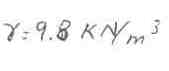 γ = 9.8 KN/m³